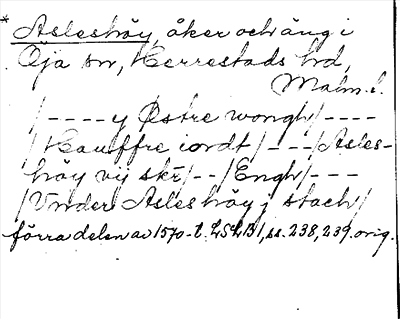 * Asleshöy, åker och äng i
Öja sn, Herrestads hd,
Malm. l.
/----y Østre wongh/----
/Hauffre iordt/---/Asles-
höy vij skr/--/Engh/---
/Vnder Asles höy j stach/
förra delen av 1570-t. LSLB1, ss. 238, 239. orig.